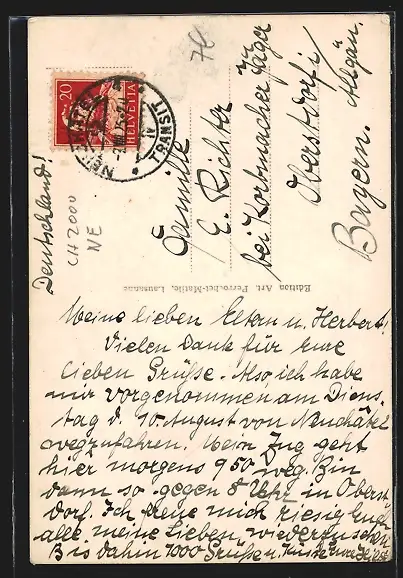 7h
20
HELVETIA
NEUCHÂTEL
TRANSIT
IV
Deutschland!
CH 2000
NE
Familie
E. Richter
bei Korbmacher Jäger
Oberstdorf i/
Bayern. Allgäu.
Edition Art. Perrochet-Matile, Lausanne
Meine lieben Eltern u. Herbert!
Vielen Dank für Eure
lieben Grüsse. Also ich habe
mir vorgenommen am Diens-
tag d. 10. August von Neuchâtel
wegzufahren. Mein Zug geht
hier morgens 9 50 weg. Bin
dann so gegen 8 Uhr in Oberst
dorf. Ich freue mich riesig Euch
alle meine Lieben wiederzusehen.
Bis dahin 1000 Grüsse u. Küsse Eure